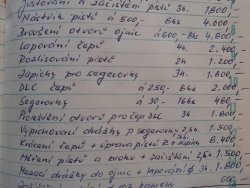 Justování a začištění pístů 3h. 1.800
Nástřik pístů á 500,- 8ks 4.000
Broušení otvorů ojnic á 600,- 8ks 4.800
Lapování čepů 4h. 2.400
Rozlisování pístů 2h 1.200
Zápichy pro segerovky 3h. 1.800
DLC čepů á 250,- 8ks 2.000
Segerovky á 30,- 16ks 480
Proražení otvorů pro čep DLC 3h. 1.800
Vypichovací drážky p segerovky 2,5h. 1.500
Krácení čepů + úprava pístů R + zápichu 8.400
Měření pístů a blohu + začištění 2,5h 1.500
Mazací drážky do ojnic + lapování 3h 1.800
600,-